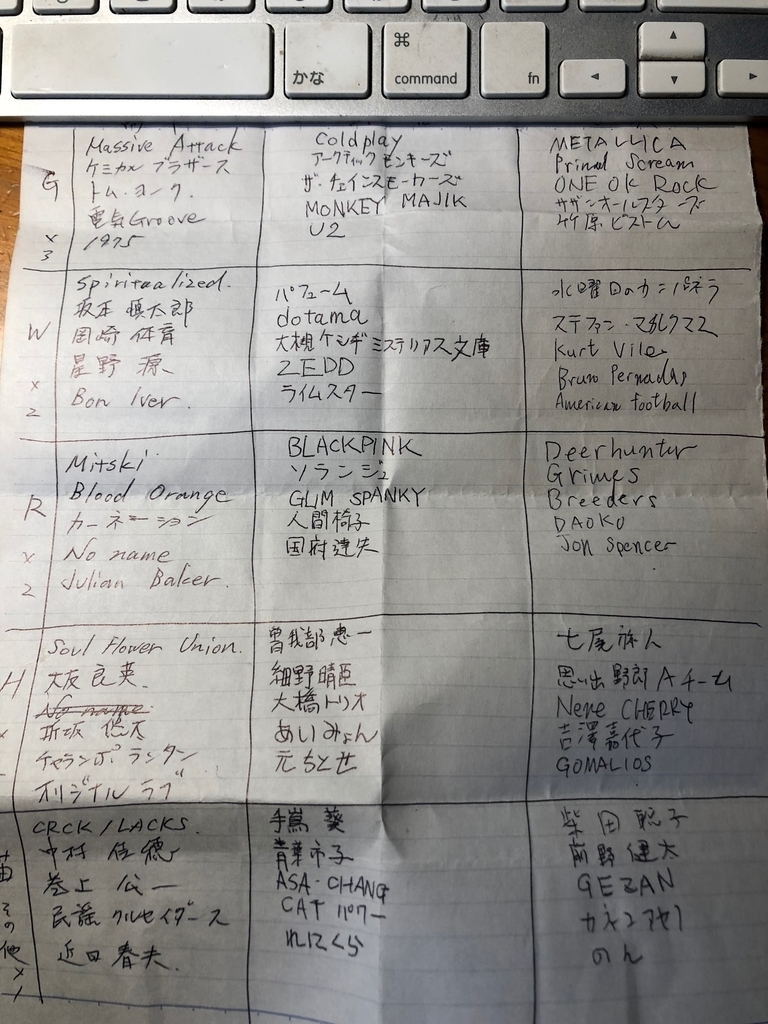 かな
⌘
command
fn
G
×3
Massive Attack
ケミカル ブラザーズ
トム・ヨーク
電気Groove
1975
Coldplay
アークティック モンキーズ
ザ・チェインスモーカーズ
MONKEY MAJIK
U2
METALLICA
Primal Scream
ONE OK ROCK
サザンオールスターズ
竹原ピストル
W
×2
Spiritualized.
坂本 慎太郎
岡崎 体育
星野 源
Bon Iver.
パフューム
dotama
大槻ケンヂミステリアス文庫
ZEDD
ライムスター
水曜日のカンパネラ
ステファン・マルクマス
Kurt Vile
Bruno Pernadas
American football
R
×2
Mitski
Blood Orange
カーネーション
No name
Julian Baker.
BLACKPINK
ソランジュ
GLIM SPANKY
人間椅子
国府達矢
Deerhunter
Grimes
Breeders
DAOKO
Jon Spencer
H
Soul Flower Union.
大友良英
No name
折坂 悠太
チャランポランタン
オリジナルラブ
曽我部恵一
細野晴臣
大橋トリオ
あいみょん
元ちとせ
七尾旅人
思い出野郎Aチーム
Nene CHERRY
吉澤嘉代子
GOMALIOS
苗
その他
×1
CRCK/LACKS.
中村 佳穂
巻上 公一
民謡 クルセイダーズ
近田 春夫.
手嶌 葵
青葉市子
ASA-CHANG
CAT パワー
れにくら
柴田 聡子
前野 健太
GEZAN
のん